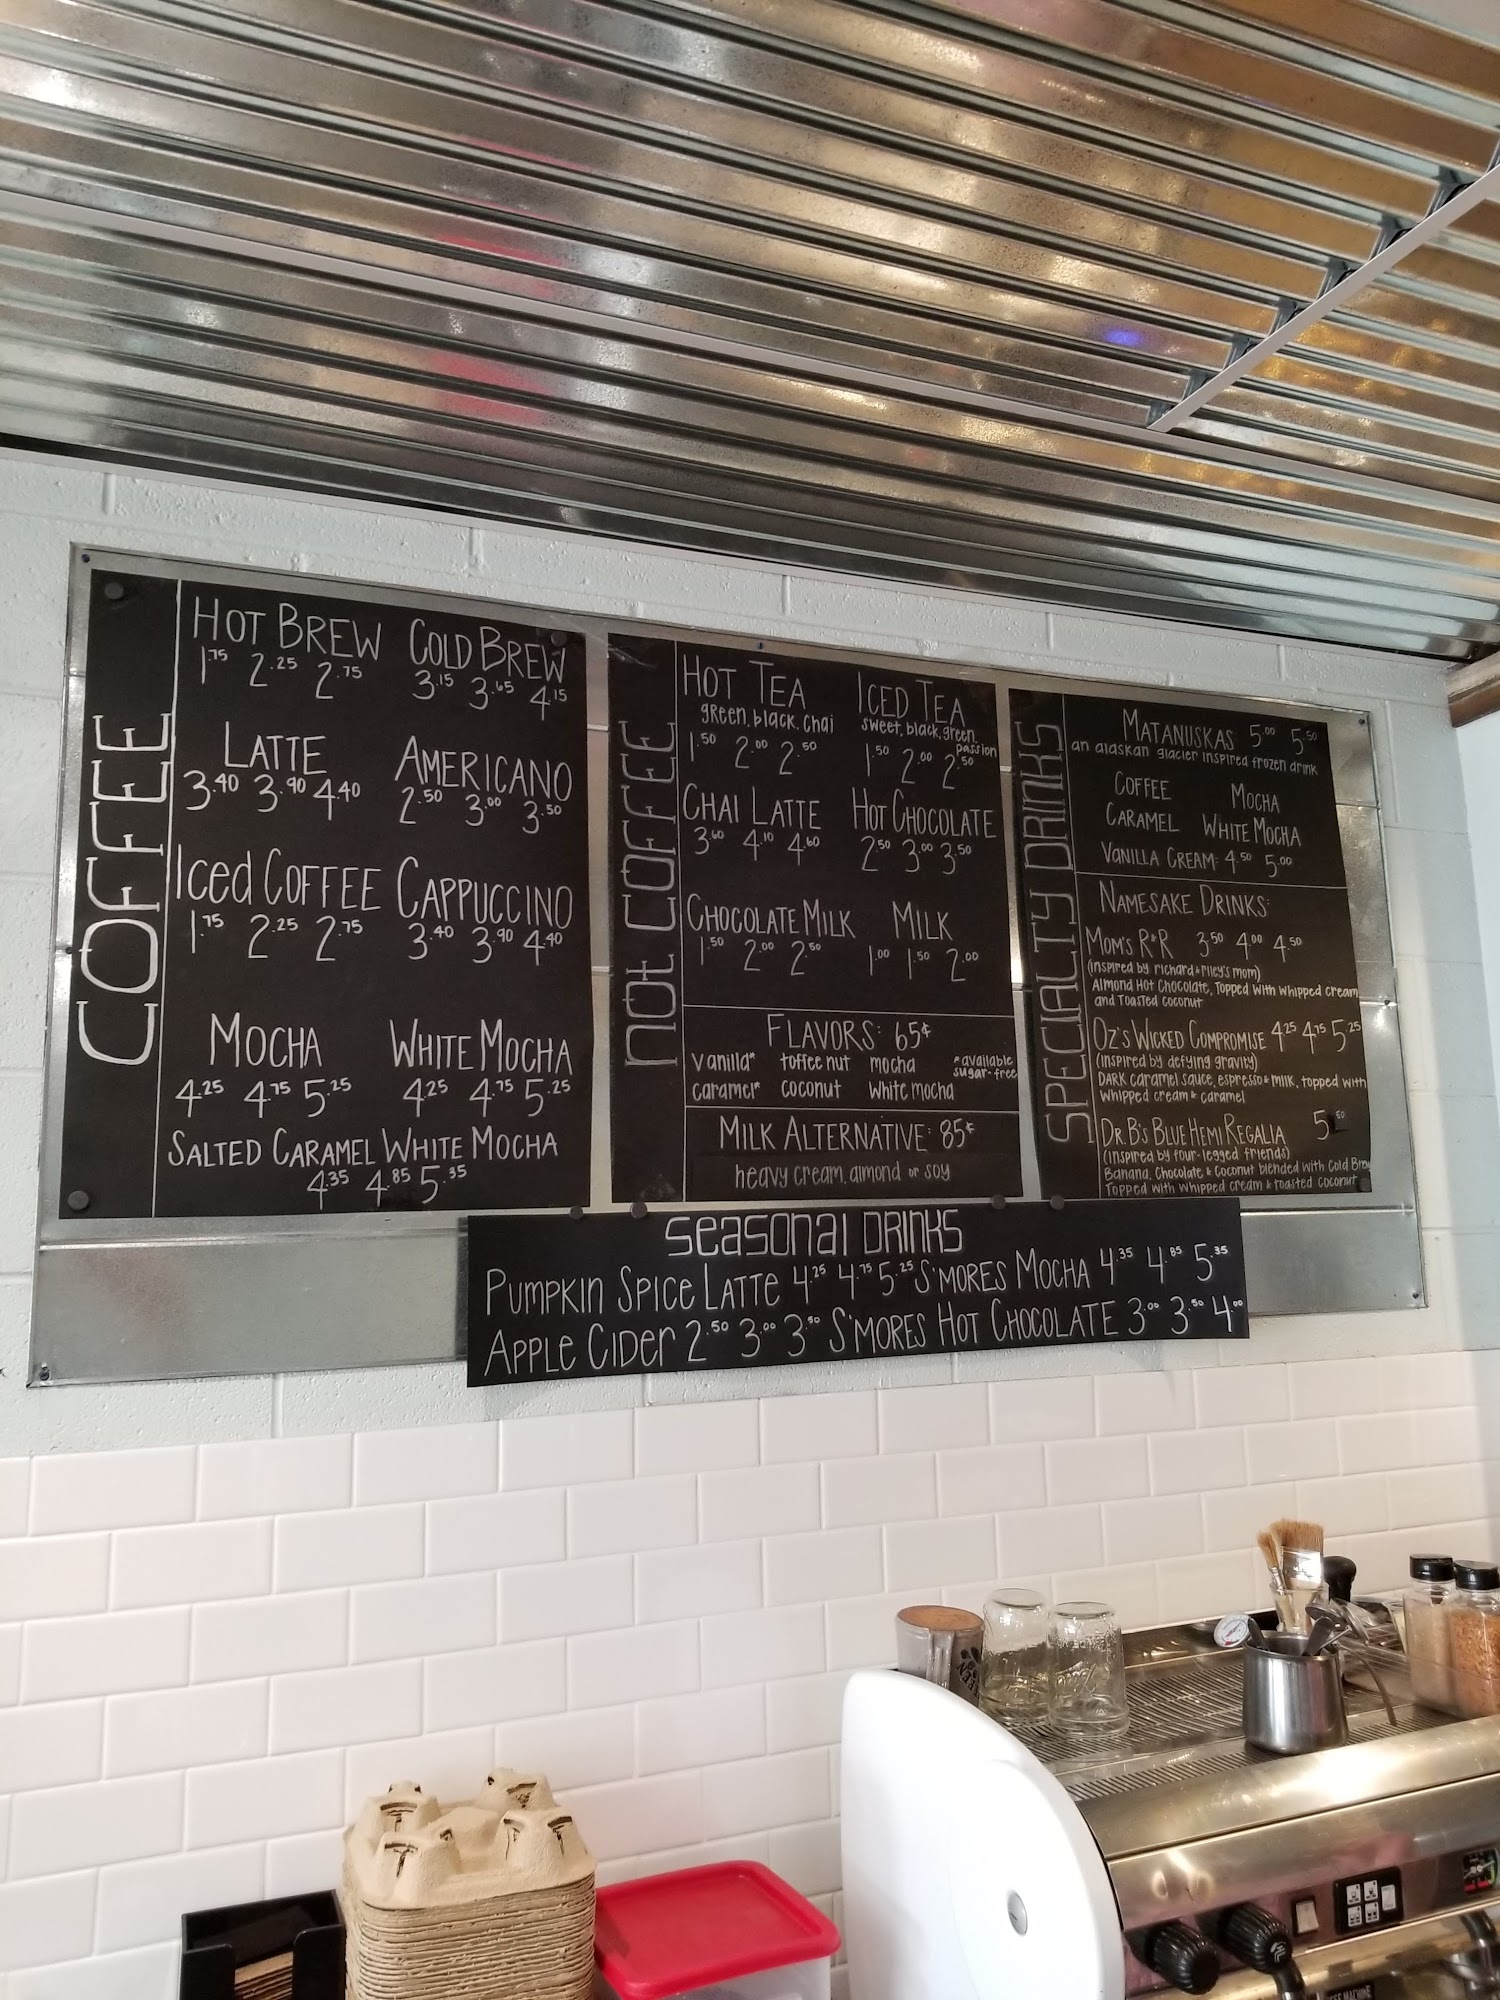 COFFEE
HOT BREW COLD BREW
1.75 2.25 2.75 3.15 3.65 4.15
LATTE AMERICANO
3.40 3.90 4.40 2.50 3.00 3.50
Iced COFFEE CAPPUCCINO
1.75 2.25 2.75 3.40 3.90 4.40
MOCHA WHITE MOCHA
4.25 4.75 5.25 4.25 4.75 5.25
SALTED CARAMEL WHITE MOCHA
4.35 4.85 5.35
NOT COFFEE
HOT TEA ICED TEA
green, black, chai sweet, black, green, passion
1.50 2.00 2.50 1.50 2.00 2.50
CHAI LATTE HOT CHOCOLATE
3.60 4.10 4.60 2.50 3.00 3.50
CHOCOLATE MILK MILK
1.50 2.00 2.50 1.00 1.50 2.00
FLAVORS: 65¢
vanilla* toffee nut mocha *available
caramel* coconut white mocha sugar-free
MILK ALTERNATIVE: 85¢
heavy cream, almond or soy
SPECIALTY DRINKS
MATANUSKAS 5.00 5.50
an alaskan glacier inspired frozen drink
COFFEE MOCHA
CARAMEL WHITE MOCHA
VANILLA CREAM: 4.50 5.00
NAMESAKE DRINKS:
MOM'S R&R 3.50 4.00 4.50
(inspired by richard & riley's mom)
Almond Hot Chocolate, Topped with whipped cream
and Toasted coconut
OZ'S WICKED COMPROMISE 4.25 4.75 5.25
(inspired by defying gravity)
DARK caramel sauce, espresso & milk, topped with
whipped cream & caramel
DR. B'S BLUE HEMI REGALIA 5.50
(inspired by four-legged friends)
Banana, Chocolate & Coconut blended with Cold Brew
Topped with whipped cream & toasted coconut
SEASONAL DRINKS
PUMPKIN SPICE LATTE 4.25 4.75 5.25 S'MORES MOCHA 4.35 4.85 5.35
APPLE CIDER 2.50 3.00 3.50 S'MORES HOT CHOCOLATE 3.00 3.50 4.00